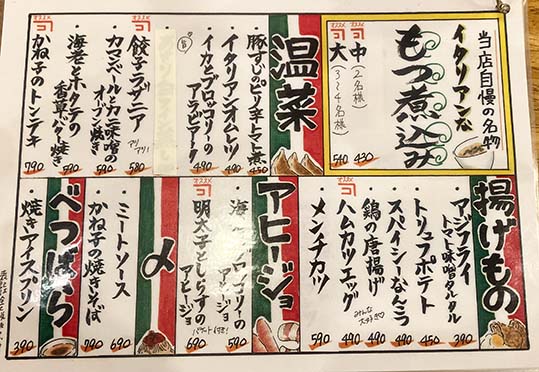 当店自慢の名物
イタリアンな
もつ煮込み
オススメ
中(2名様) 430
大(3〜4名様) 540
温菜
豚すじのピリ辛トマト煮 450
イタリアンオムレツ 490
イカとブロッコリーの
アラビアータ 490
オススメ
餃子ラザニア 580
アツアツ!
カマンベールとカニ味噌の
オーブン焼き 590
海老とホタテの
香草バター焼き 690
かね子のトンテキ 790
揚げもの
アジフライ
トマト味噌タルタル 390
トリュフポテト 450
スパイシーなんこつ 490
鶏の唐揚げ 490
みんな大好き
ハムカツエッグ 490
メンチカツ 590
アヒージョ
海老とブロッコリーの
アヒージョ 590
オススメ
明太子としらすの
アヒージョ 690
バゲット付き!
〆
ミートソース 690
かね子の焼きそば 790
べつばら
焼きアイスプリン 390